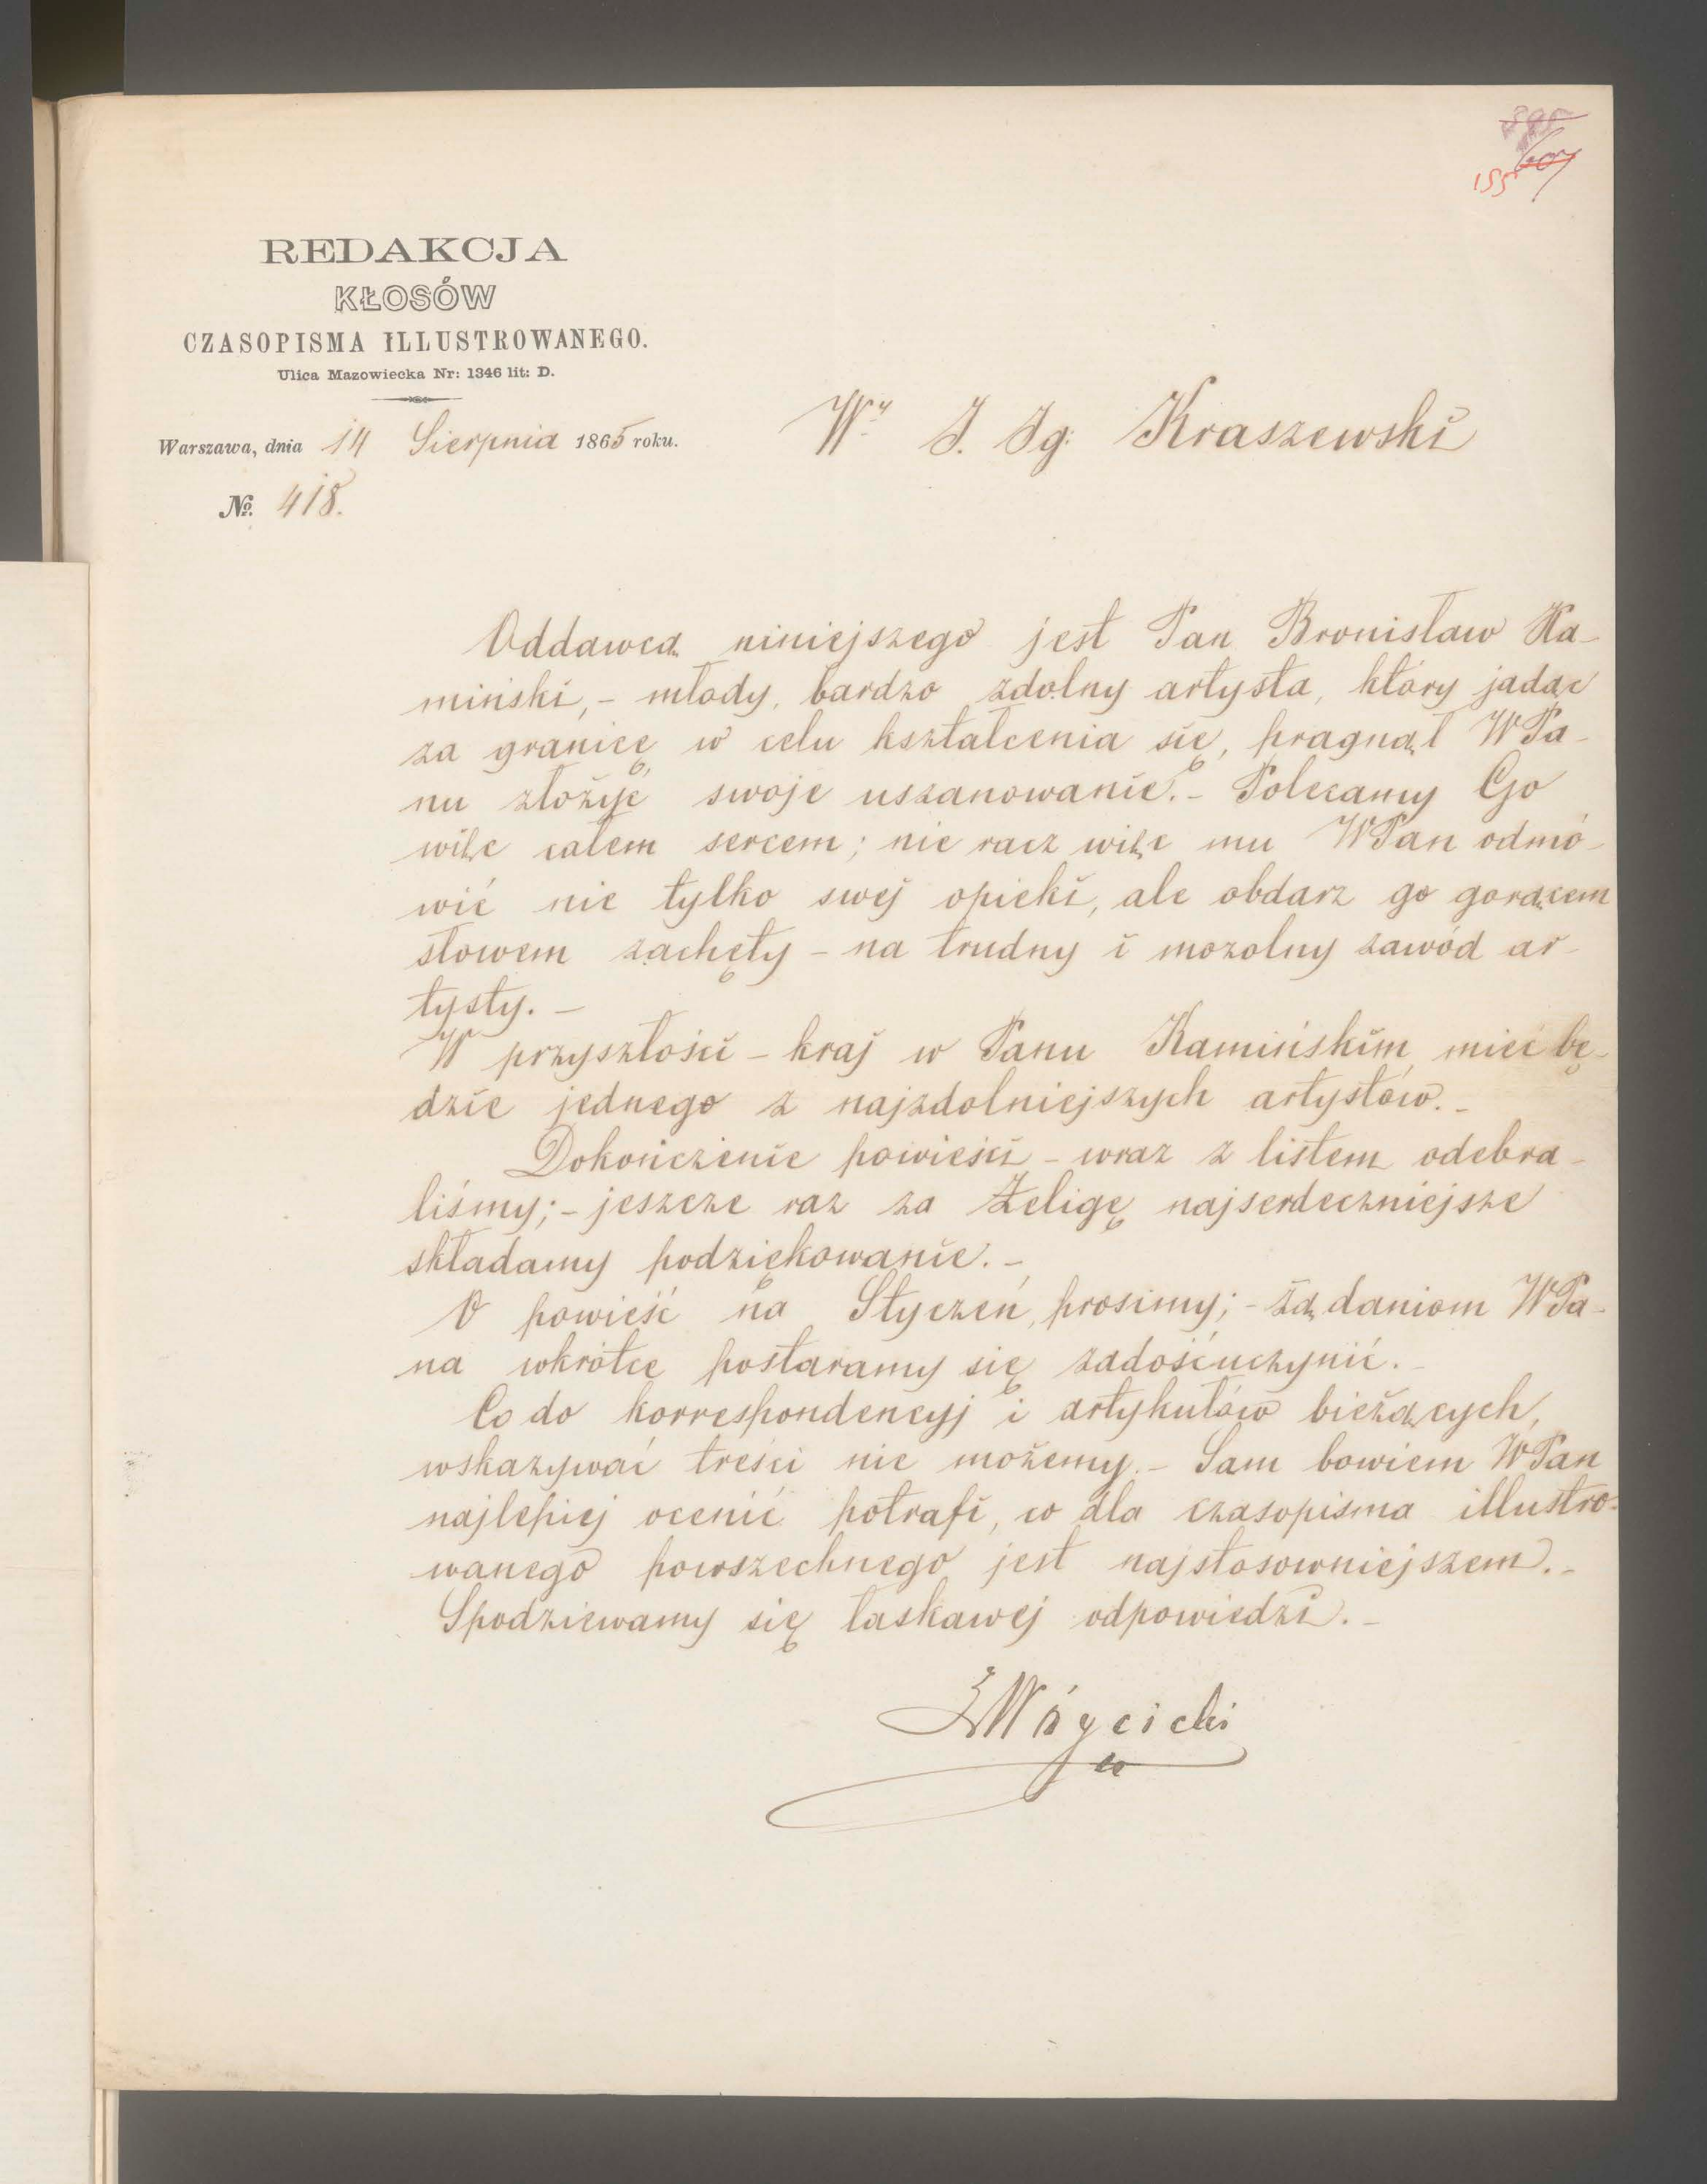 155
REDAKCJA
KŁOSÓW
CZASOPISMA ILLUSTROWANEGO.
Ulica Mazowiecka Nr: 1346 lit: D.
Warszawa, dnia 14 Sierpnia 1865 roku.
Wy J. Ig: Kraszewski
No. 418.
Oddawcą niniejszego jest Pan Bronisław Ka-
miński,- młody, bardzo zdolny artysta, który jadąc
za granicę w celu kształcenia się, pragnął WPa-
nu złożyć swoje uszanowanie.- Polecamy Go
więc całem sercem; nie racz więc mu WPan odmó-
wić nie tylko swej opieki, ale obdarz go gorącem
słowem zachęty - na trudny i mozolny zawód ar-
tysty. -
W przyszłości - kraj w Panu Kamińskim mieć bę-
dzie jednego z najzdolniejszych artystów. -
Dokończenie powieści - wraz z listem odebra-
liśmy; - jeszcze raz za Żeligę najserdeczniejsze
składamy podziękowanie. -
O powieść na Styczeń, prosimy; - żądaniom WPa-
na wkrótce postaramy się zadośćuczynić. -
Co do korrespondencyj i artykułów bieżących,
wskazywać treści nie możemy. - Sam bowiem WPan
najlepiej ocenić potrafi, co dla czasopisma illustro-
wanego powszechnego jest najstosowniejszem. -
Spodziewamy się łaskawej odpowiedzi. -
Wóycicki